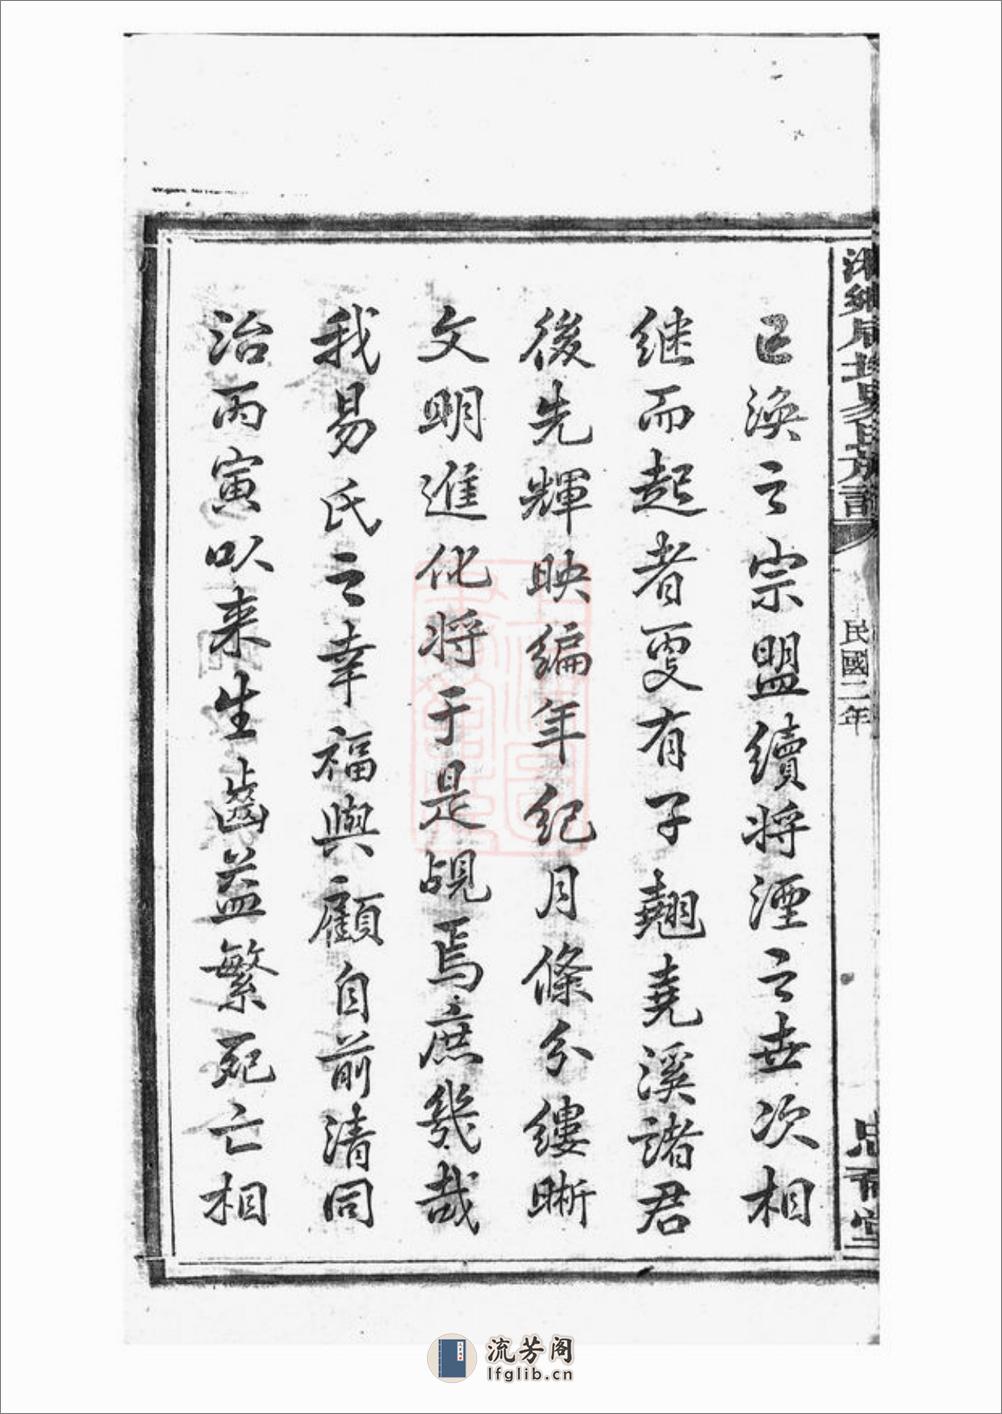 民國二年
已渙之宗盟續将湮之世次相
继而起者更有子翹堯溪諸君
後先輝映編年纪月條分縷晰
文明進化将于是覘焉庶幾哉
我易氏之幸福與顧自前清同
治丙寅以来生齒益繁死亡相
流芳阁
lfglib.cn